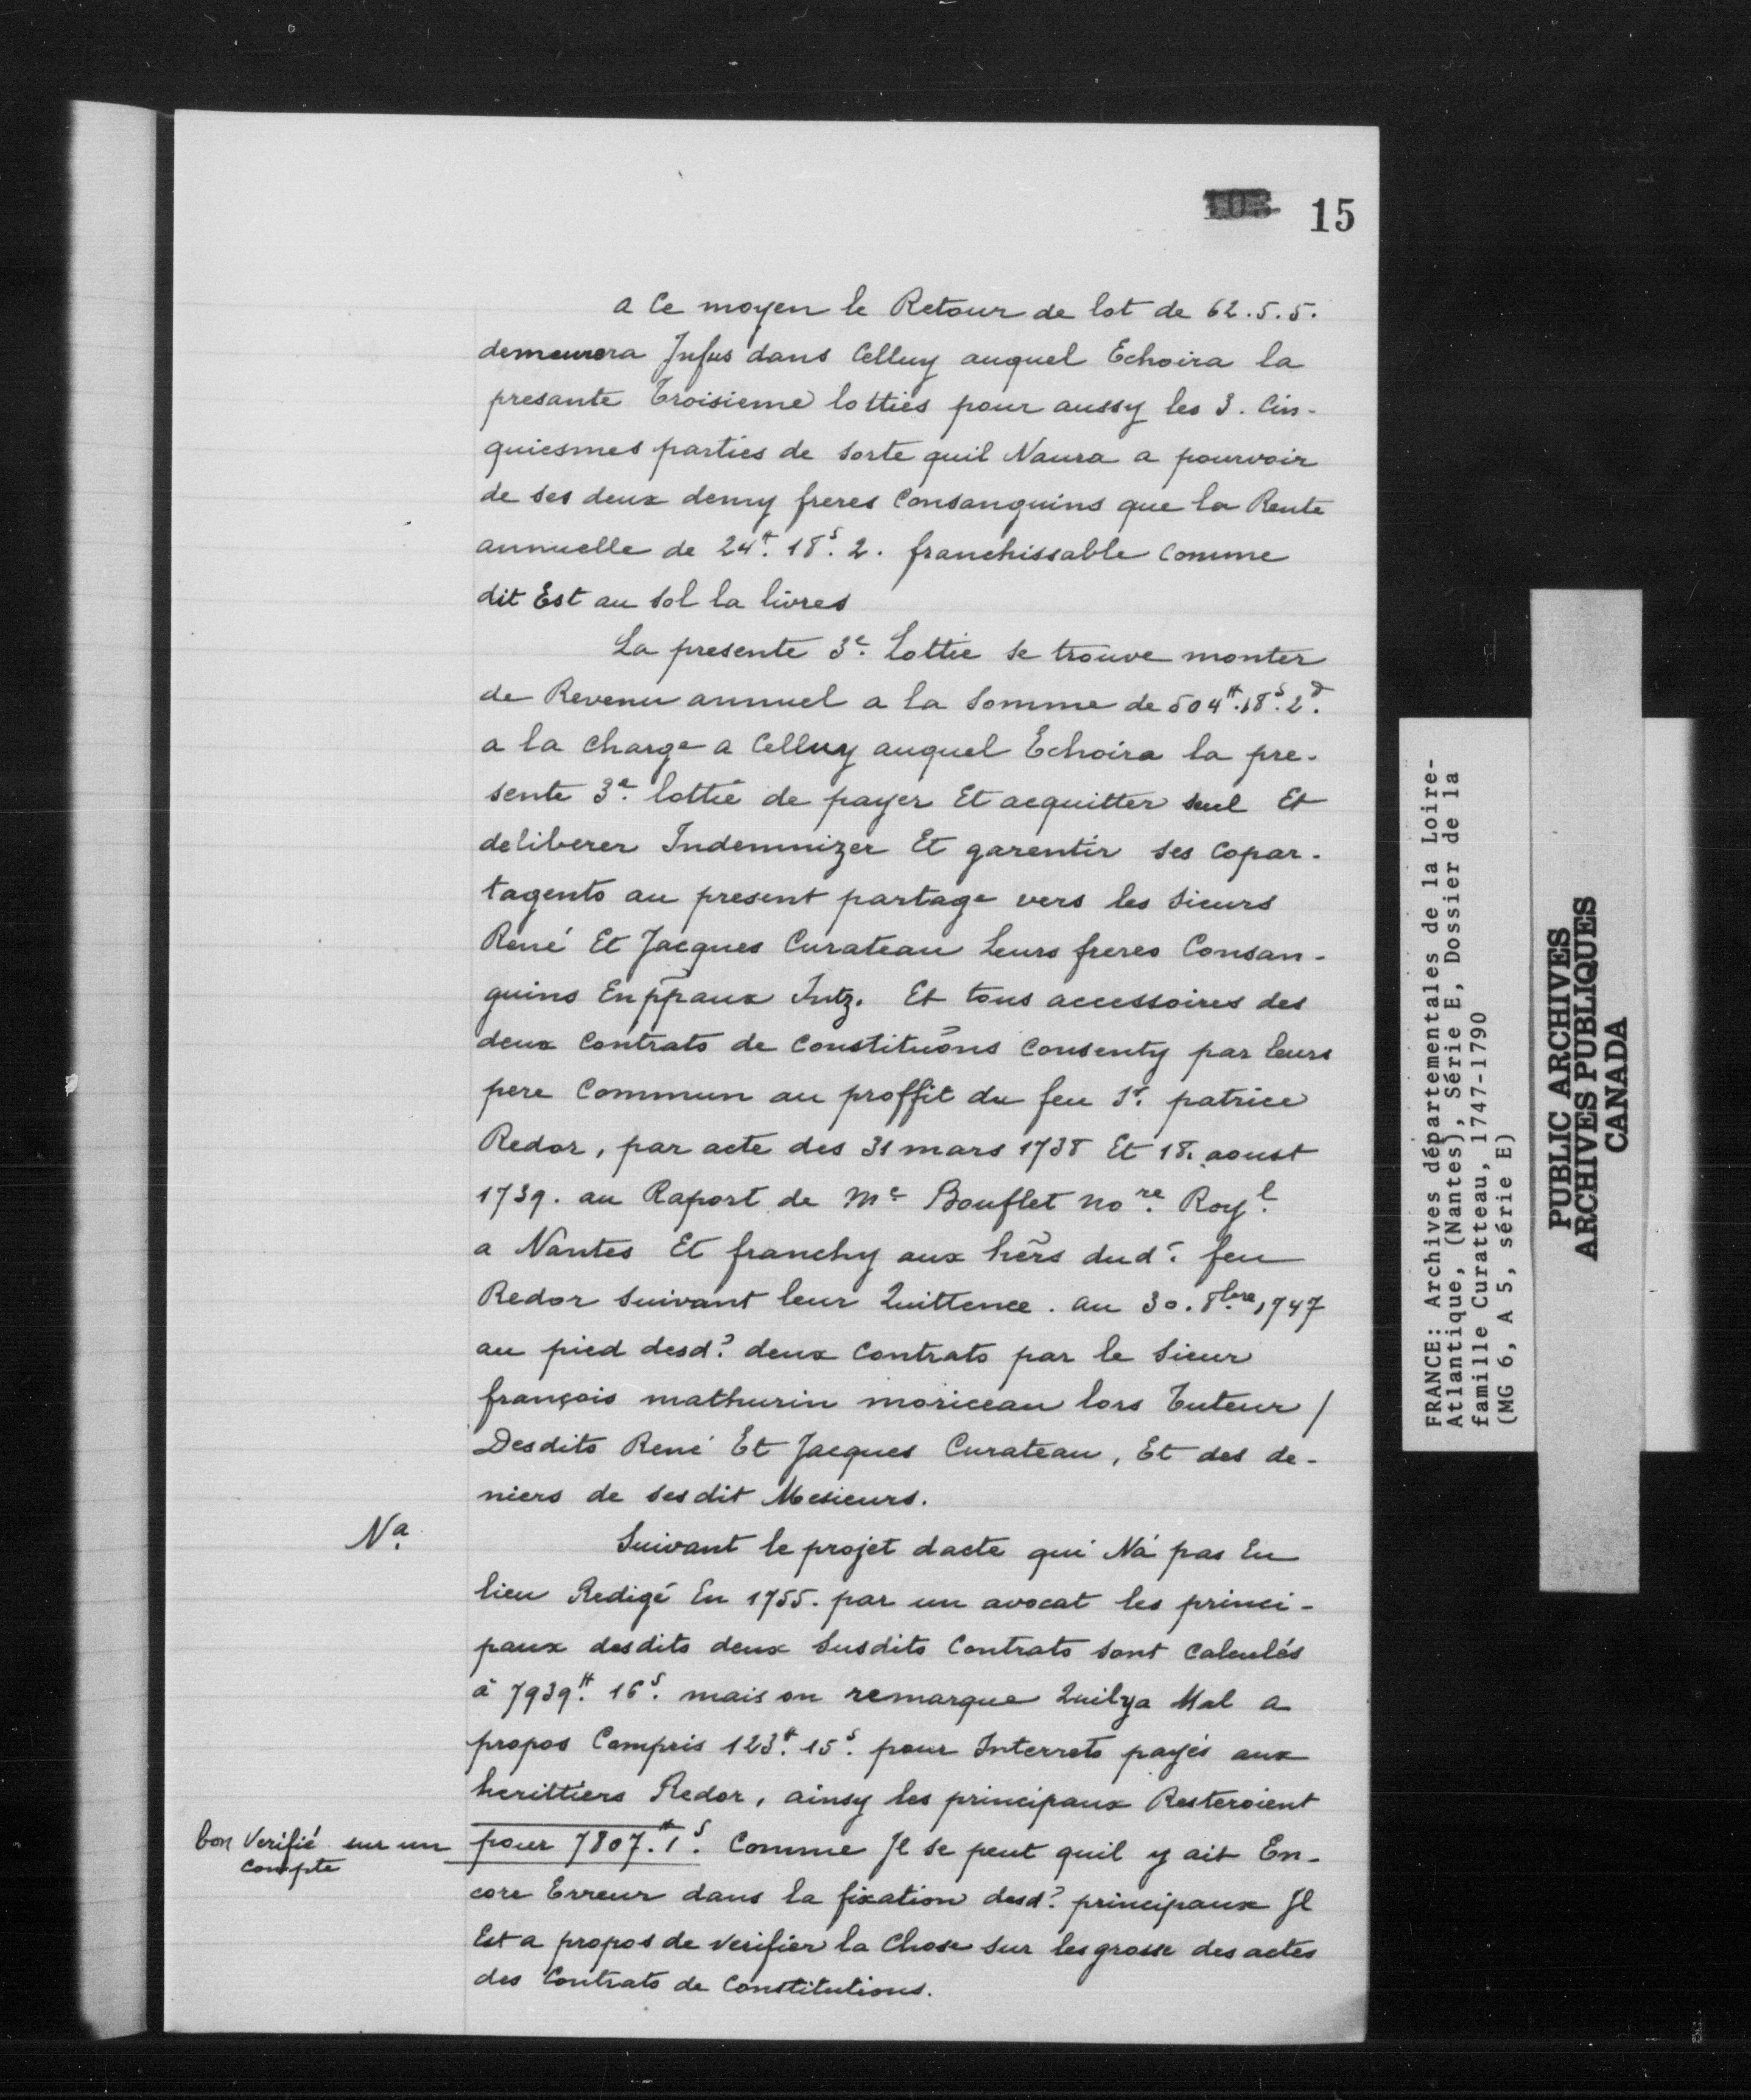 15
a Ce moyen le Retour de lot de 62.5.5.
demeurera Jnfus dans Celluy auquel Echoira la
presante troisieme lotties pour aussy les 3. Cin-
quiesmes parties de sorte quil Naura a pourvoir
de ses deux demy freres Consanguins que la Rente
annuelle de 24#. 18s. 2. franchissable Comme
dit Est au sol la livres
La presente 3e. Lottie se trouve monter
de Revenu annuel a la Somme de 504#.18s.2d.
a la charge a Celluy auquel Echoira la pre-
sente 3e. lottie de payer Et acquitter seul Et
deliberer Indemnizer Et garentir ses copar-
tagents au present partage vers les Sieurs
René Et Jacques Curateau leurs freres Consan-
guins En pp̃aux Intz. Et tous accessoires des
deux Contrats de Constituõns Consenty par leurs
pere Commun au proffit du feu Sr. patrice
Redor, par acte des 31 mars 1738 Et 18. aoust
1739. au Raport de Me Bouflet nore. Royl.
a Nantes Et franchy aux hẽrs dud. feu
Redor suivant leur Quittence. au 30. 8bre. 1747
au pied desd. deux Contrats par le Sieur
françois mathurin moriceau lors Tuteur /
Desdits René Et Jacques Curateau, Et des de-
niers de sesdit Mesieurs.
Na.
Suivant le projet dacte qui Ná pas Eu
lieu Redigé En 1755. par un avocat les princi-
paux desdits deux Susdits Contrats sont Calculés
à 7939#. 16s. mais on remarque Quilya Mal a
propos Compris 123#. 15s. pour Interrets payés aux
herittiers Redor, ainsy les principaux Resteroient
bon Verifié sur un
compte
pour 7807.#1s. Comme Jl se peut quil y ait En-
core Erreur dans la fixation desd. principaux Jl
Est a propos de verifier la Chose sur les grosse des actes
des Contrats de Constitutions.
FRANCE: Archives départementales de la Loire-
Atlantique, (Nantes), Série E, Dossier de la
famille Curatteau, 1747-1790
(MG 6, A 5, série E)
PUBLIC ARCHIVES
ARCHIVES PUBLIQUES
CANADA